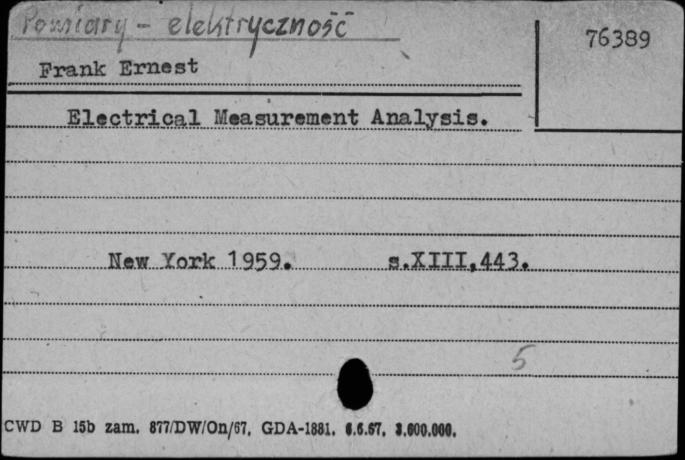 Pomiary - elektryczność
76389
Frank Ernest
Electrical Measurement Analysis.
New York 1959. s.XIII,443.
5
CWD B 15b zam. 877/DW/On/67, GDA-1881. 6.6.67, 3.600.000.